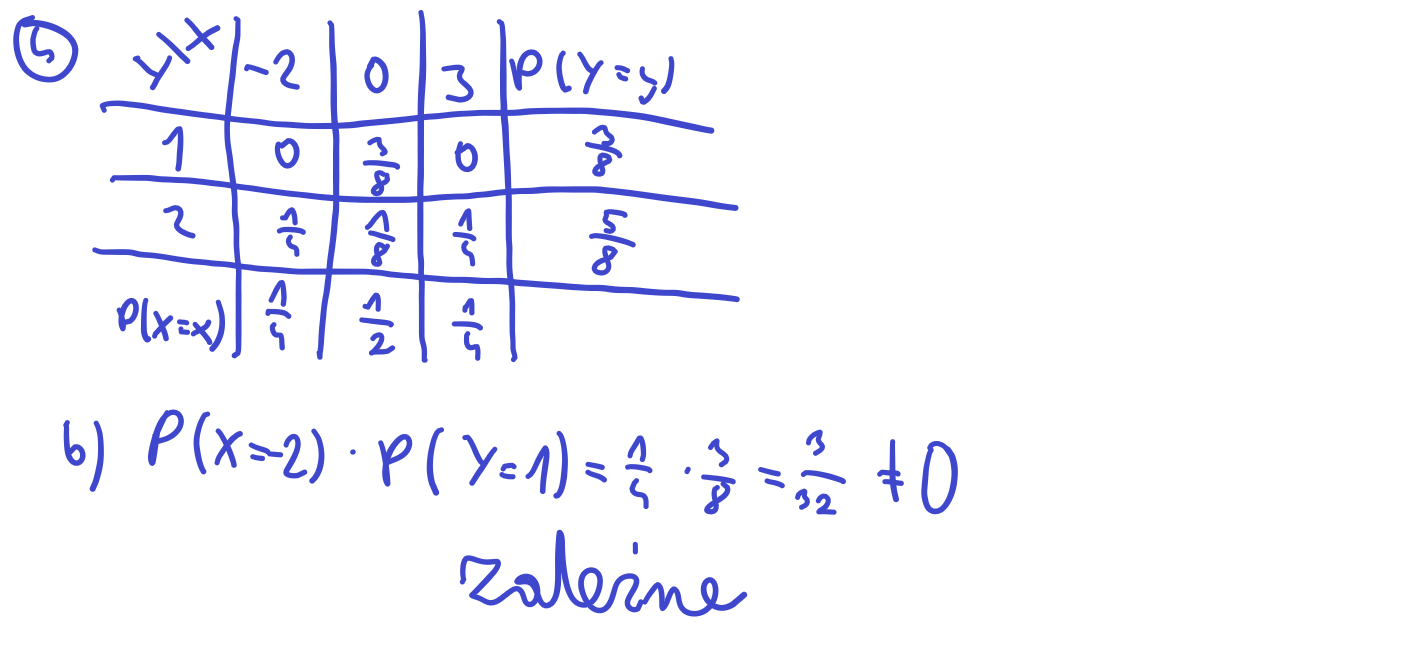 5
Y\X -2 0 3 P(Y=y)
1 0 3/8 0 3/8
2 1/4 1/8 1/4 5/8
P(X=x) 1/4 1/2 1/4
b) P(X=-2) · P(Y=1) = 1/4 · 3/8 = 3/32 ≠ 0
zależne